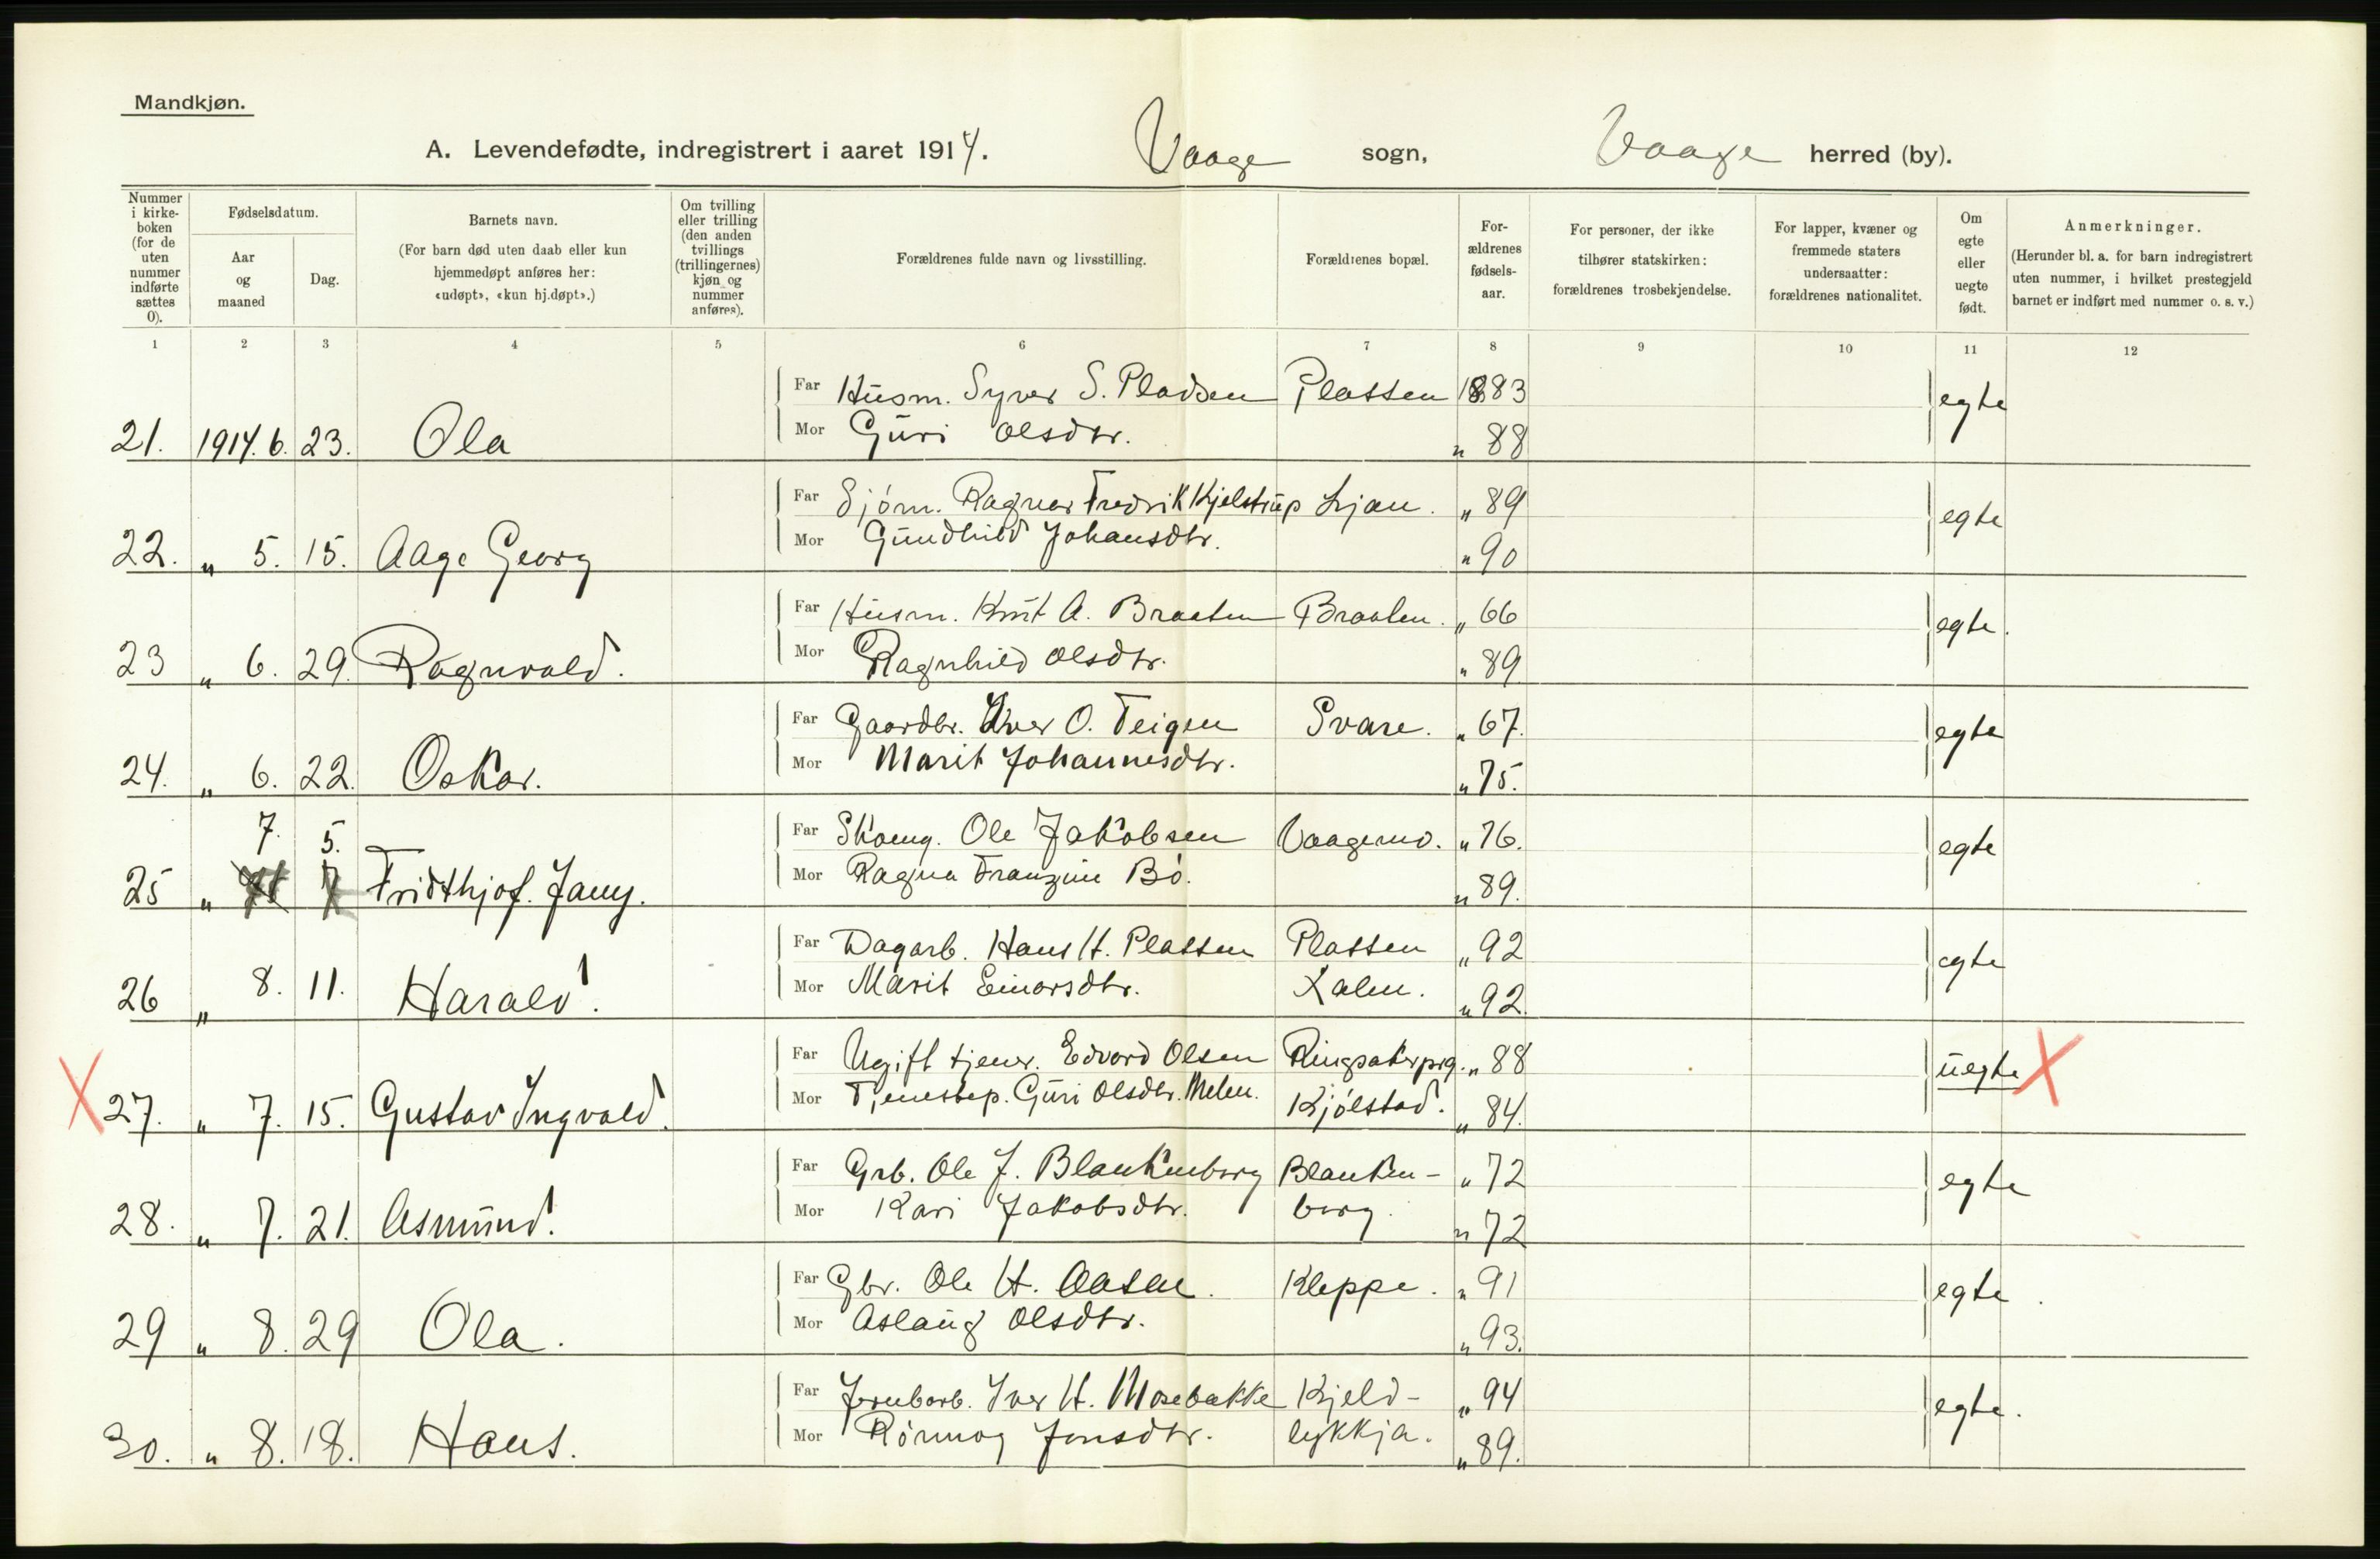 Mandkjøn.
A. Levendefødte, indregistrert i aaret 1914. Vaage sogn, Vaage herred (by).
Nummer i kirkeboken (for de uten nummer indførte sættes 0).
Fødselsdatum.
Aar og maaned
Dag.
Barnets navn.
(For barn død uten daab eller kun hjemmedøpt anføres her: «udøpt», «kun hj.døpt».)
Om tvilling eller trilling (den anden tvillings (trillingernes) kjøn og nummer anføres).
Forældrenes fulde navn og livsstilling.
Forældrenes bopæl.
Forældrenes fødselsaar.
For personer, der ikke tilhører statskirken: forældrenes trosbekjendelse.
For lapper, kvæner og fremmede staters undersaatter: forældrenes nationalitet.
Om egte eller uegte født.
Anmerkninger.
(Herunder bl. a. for barn indregistrert uten nummer, i hvilket prestegjeld barnet er indført med nummer o. s. v.)
1 2 3 4 5 6 7 8 9 10 11 12
Far Husm. Syver S. Pladsen Plassen 1883 egte
21. 1914. 6. 23. Ola Mor Guri Olsdtr. " 88
Far Sjöm. Ragnar Fredrik Kjelstrup Ljan. " 89 egte
22. " 5. 15. Aage Georg Mor Gundhild Johansdtr. " 90
Far Husm. Knut A. Braaten Braaten. " 66 egte.
23 " 6. 29. Ragnvald. Mor Ragnhild Olsdtr. " 89
Far Gaardbr. Iver O. Teigen Svare. " 67. egte
24. " 6. 22. Oskar. Mor Marit Johannesdtr. " 75.
7. 5. Far Skomg. Ole Jakobsen Vaagemo. " 76. egte
25 " Fridthjof. Jany. Mor Ragna Franzine Bö. " 89.
Far Dagarb. Hans H. Plassen Plassen " 92 egte
26 " 8. 11. Harald. Mor Marit Einarsdtr. Kalen. " 92.
Far Ugift tjener. Edvard Olsen Ringsakerprg. " 88 uegte X
X 27. " 7. 15. Gustav Ingvald. Mor Tjenestep. Guri Olsdtr. Melen. Kjölstad. " 84.
Far Grb. Ole J. Blankenborg Blanken- " 72 egte
28. " 7. 21. Asmund. Mor Kari Jakobsdtr. borg. " 72
Far Gbr. Ole H. Aasen. Kleppe. " 91 egte
29 " 8. 29 Ola. Mor Aslaug Olsdtr. " 93.
Far Jernbarb. Iver H. Mosebakke Kjeld- " 94 egte.
30. " 8. 18. Hans. Mor Rönnog Jonsdtr. lykkja. " 89.